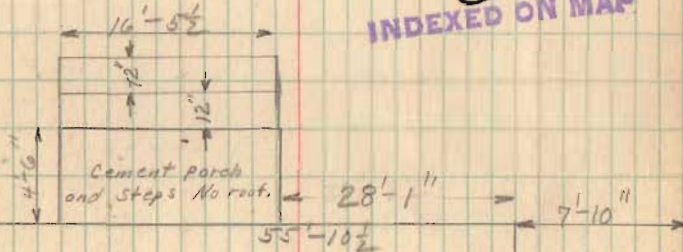 16'-5½
INDEXED ON MAP
12"
12"
4'-6"
Cement porch
and steps No roof.
28'-1"
7'-10"
55'-10½